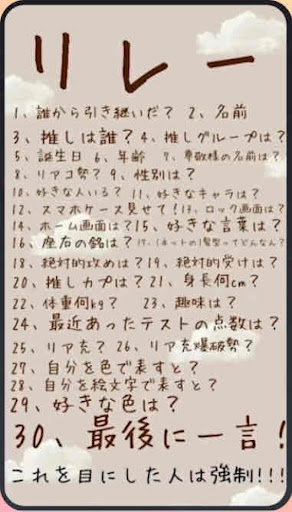 リレー
1、誰から引き継いだ? 2、名前
3、推しは誰? 4、推しグループは?
5、誕生日 6、年齢 7、尊敬様の名前は?
8、リアコ勢? 9、性別は?
10、好きな人いる? 11、好きなキャラは?
12、スマホケース見せて! 13、ロック画面は?
14、ホーム画面は? 15、好きな言葉は?
16、座右の銘は? 17、(ネットの)髪型ってどんなん?
18、絶対的攻めは? 19、絶対的受けは?
20、推しカプは? 21、身長何cm?
22、体重何kg? 23、趣味は?
24、最近あったテストの点数は?
25、リア充? 26、リア充爆破勢?
27、自分を色で表すと?
28、自分を絵文字で表すと?
29、好きな色は?
30、最後に一言!
これを目にした人は強制!!!